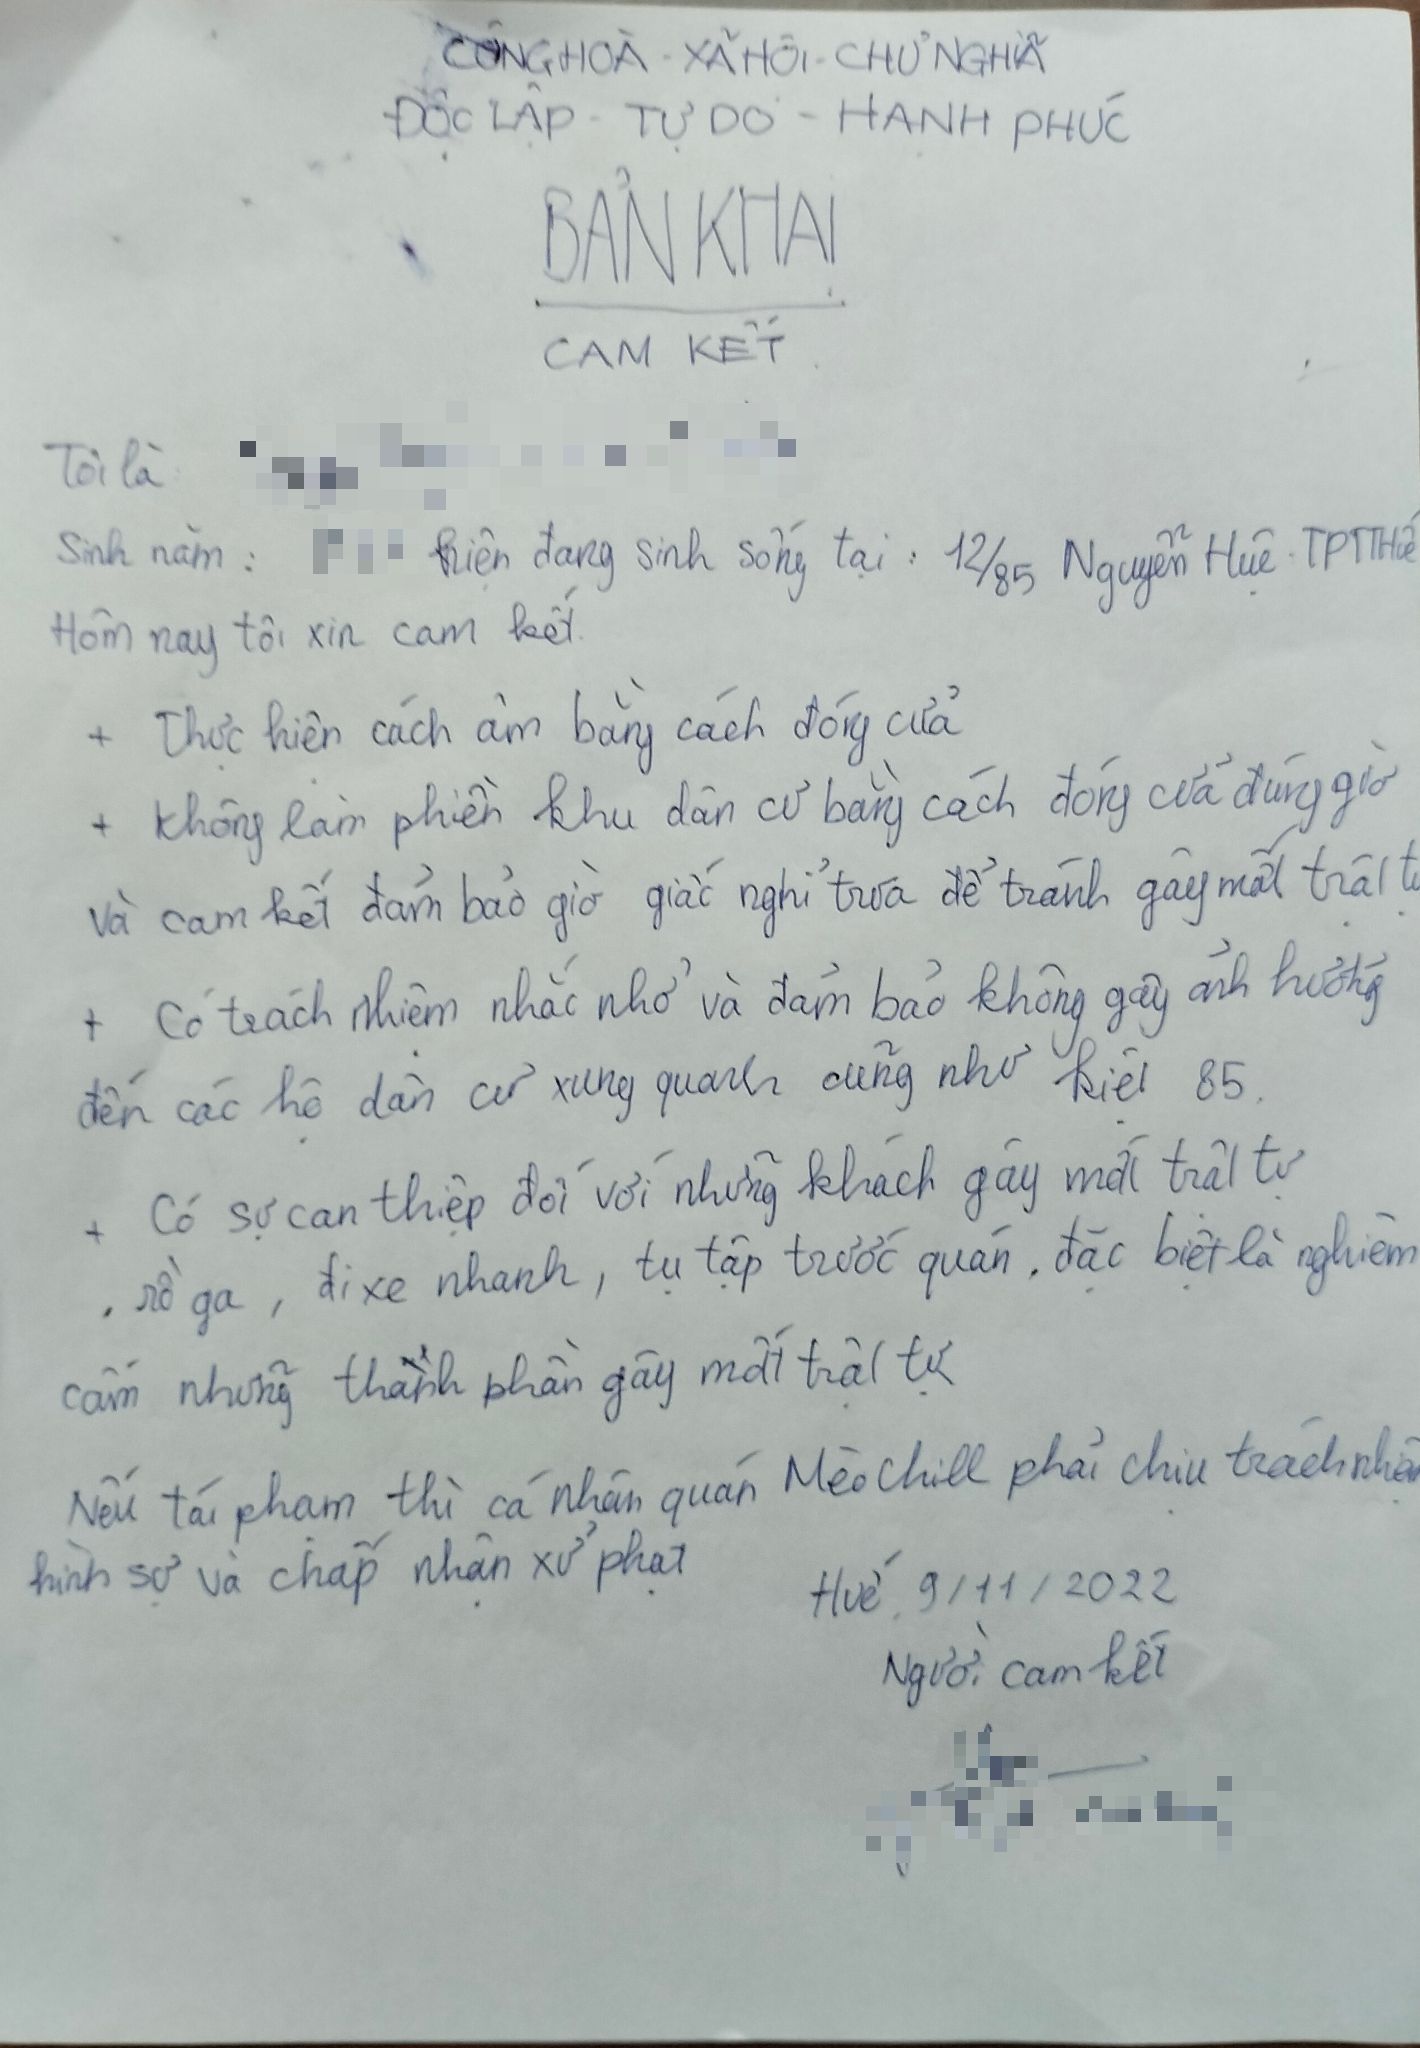 CỘNG HOÀ - XÃ HÔI - CHỦ NGHĨA
ĐỘC LẬP - TỰ DO - HẠNH PHÚC
BẢN KHAI
CAM KẾT
Tôi là
Sinh năm : hiện đang sinh sống tại : 12/85 Nguyễn Huệ TPTTHuế
Hôm nay tôi xin cam kết
+ Thực hiện cách âm bằng cách đóng cửa
+ không làm phiền khu dân cư bằng cách đóng cửa đúng giờ
và cam kết đảm bảo giờ giấc nghỉ trưa để tránh gây mất trật tự
+ Có trách nhiệm nhắc nhở và đảm bảo không gây ảnh hưởng
đến các hộ dân cư xung quanh cũng như kiệt 85.
+ Có sự can thiệp đối với những khách gây mất trật tự
. rồ ga , đi xe nhanh , tụ tập trước quán . đặc biệt là nghiêm
cấm những thành phần gây mất trật tự
Nếu tái phạm thì cá nhân quán Mèo Chill phải chịu trách nhiệm
hình sự và chấp nhận xử phạt
Huế, 9/11/2022
Người cam kết